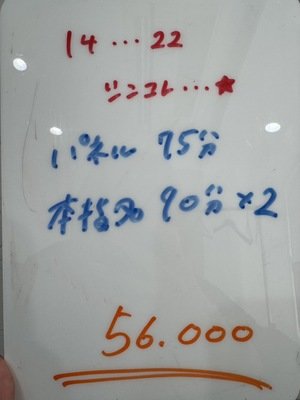 14...22
ジンコレ...★
パネル 75分
本指名 90分×2
56.000